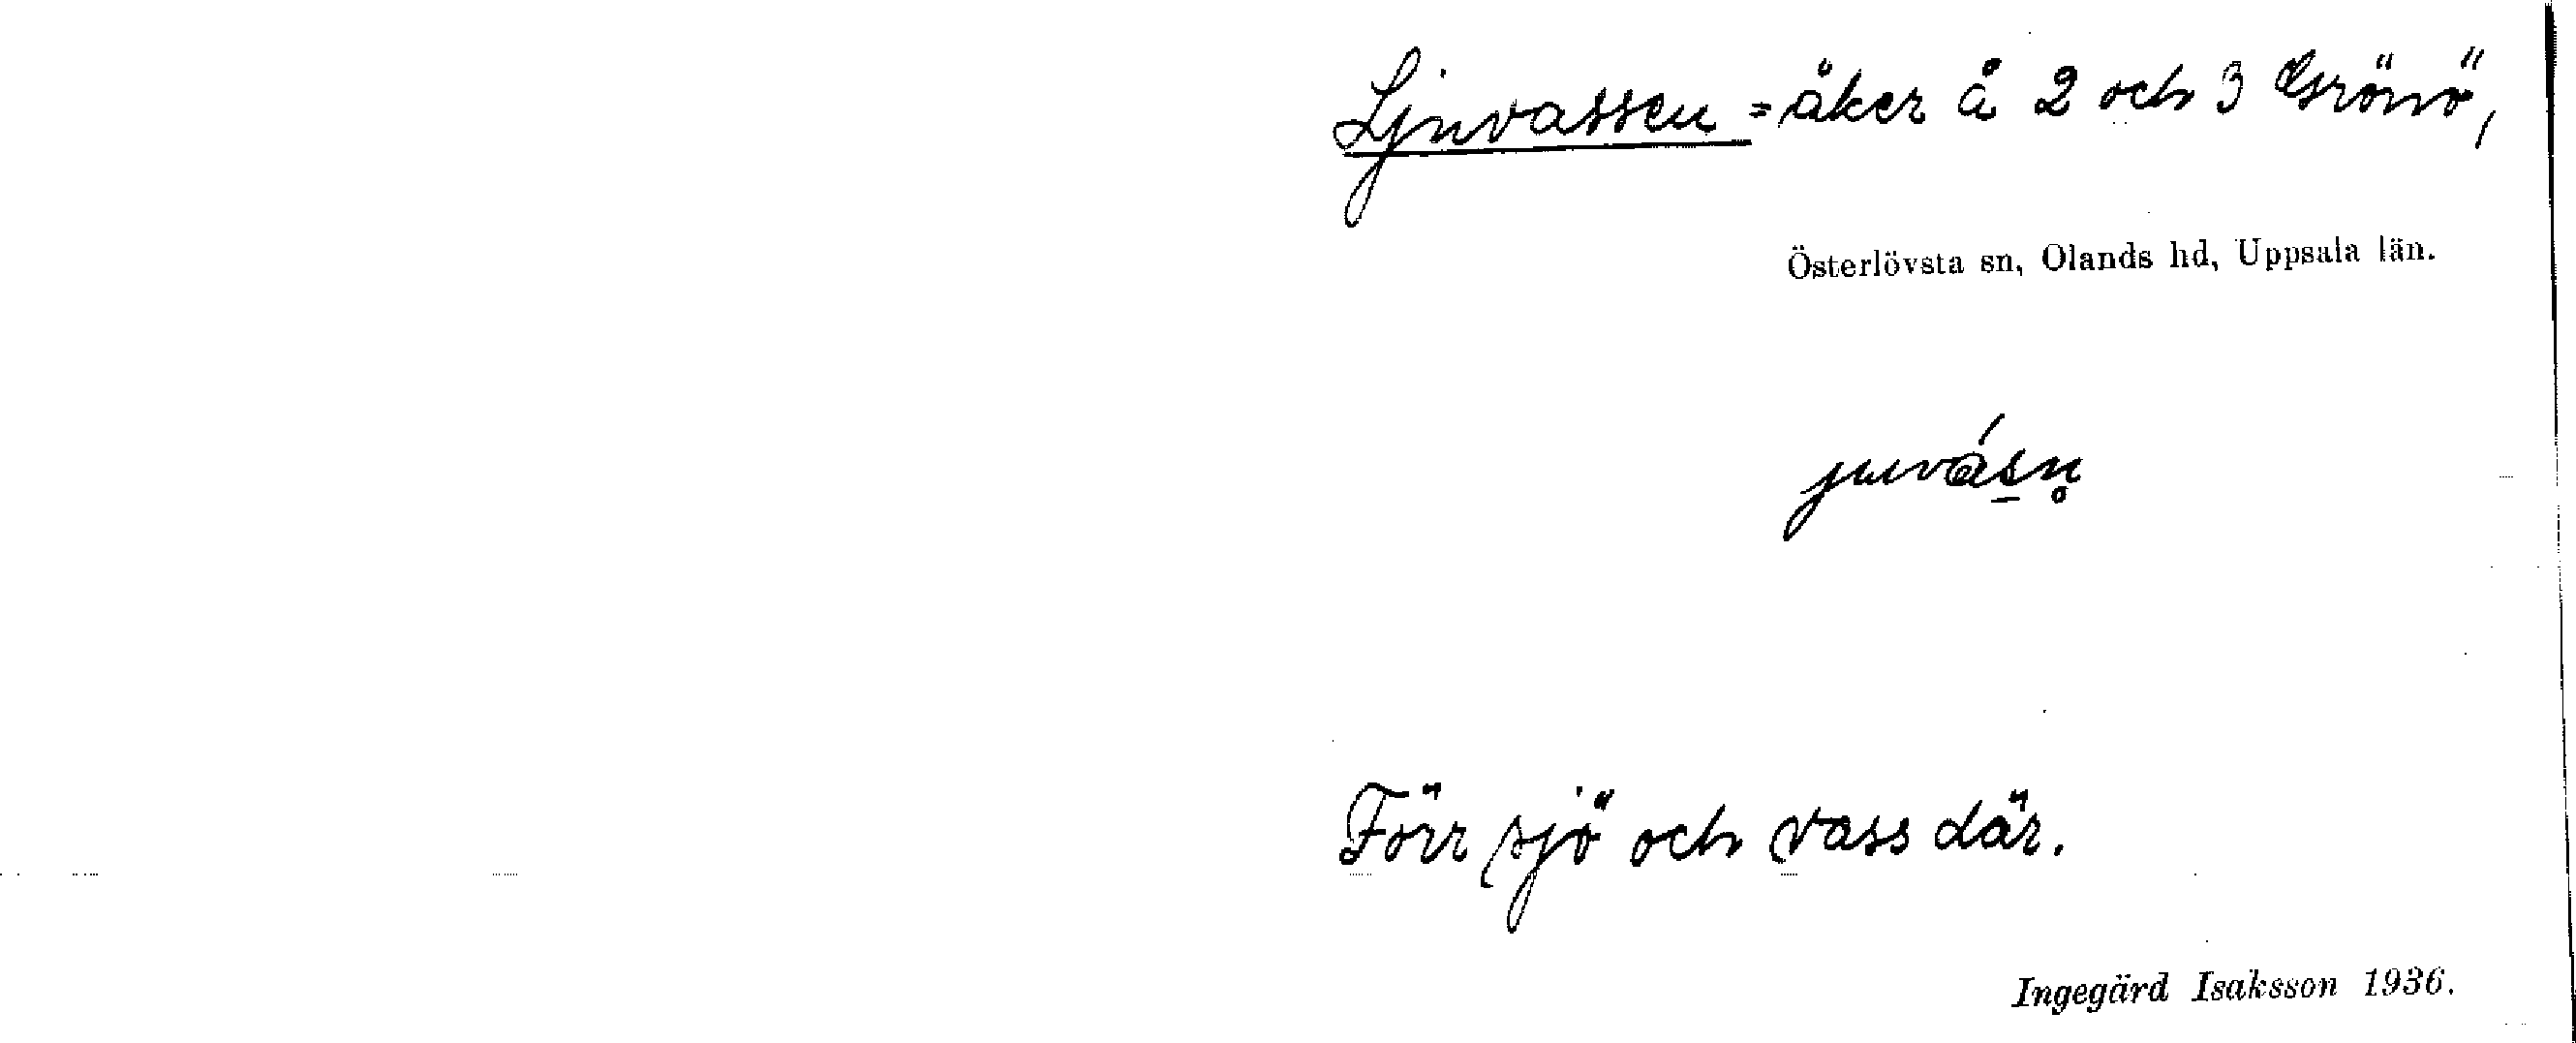 Ljuvassen = åker å 2 och 3 Grönö,
Österlövsta sn, Olands hd, Uppsala län.
Förr sjö och vass där.
Ingegärd Isaksson 1936.